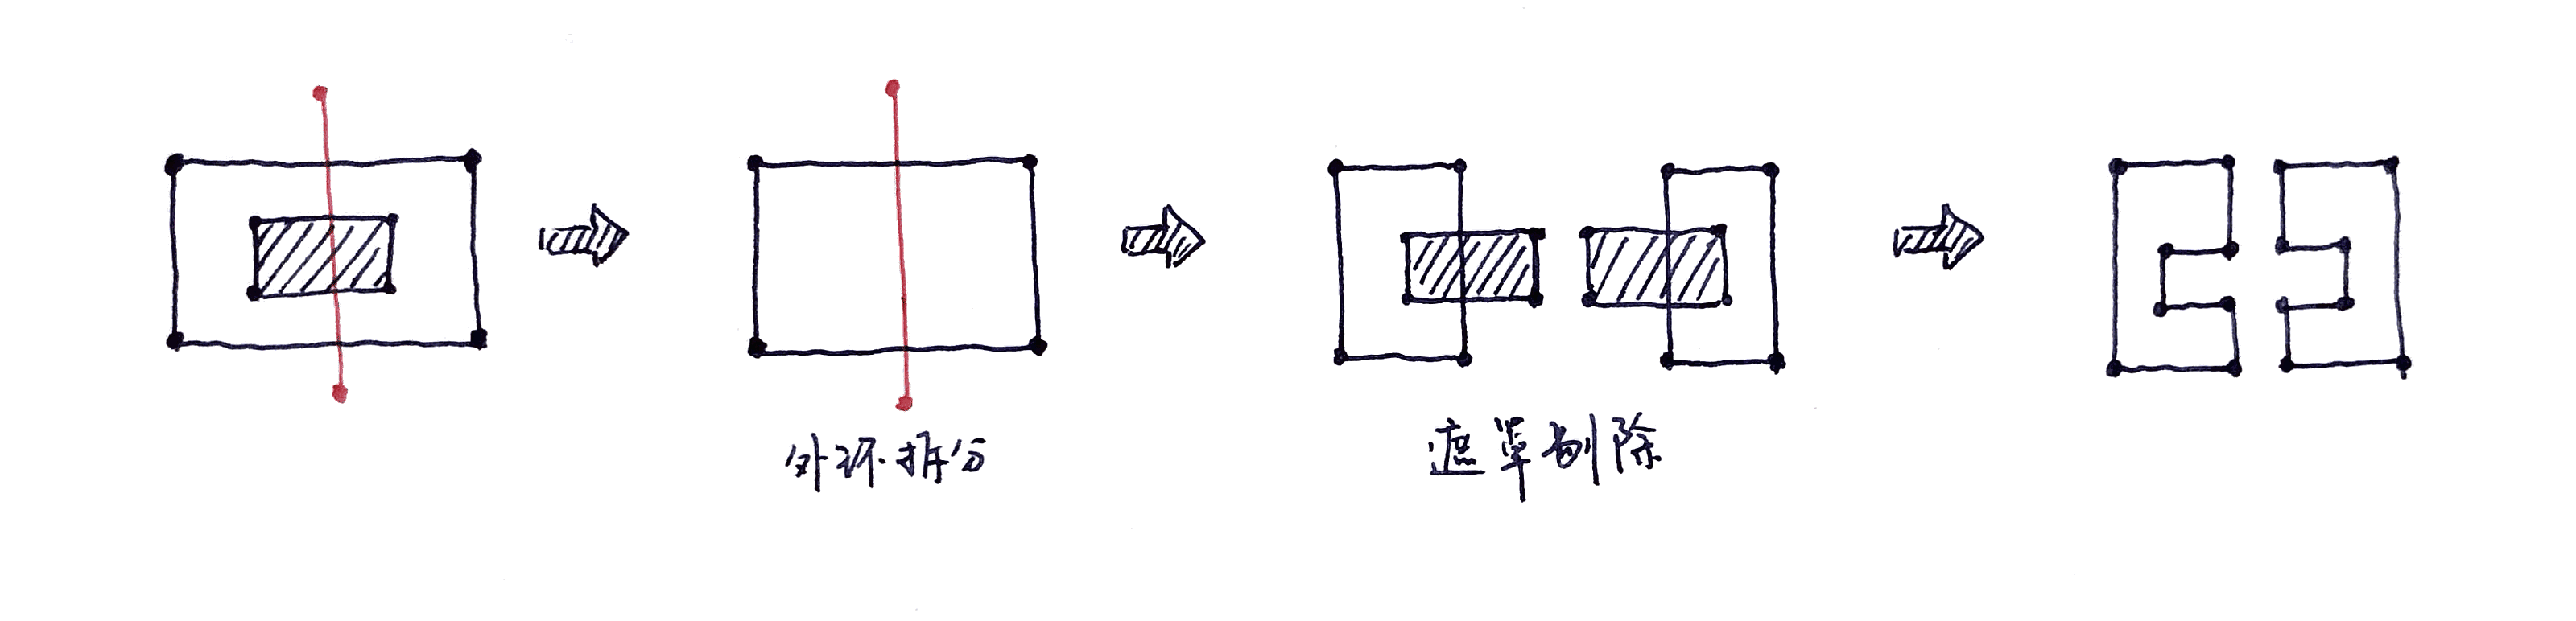 外环拆分
遮罩剔除